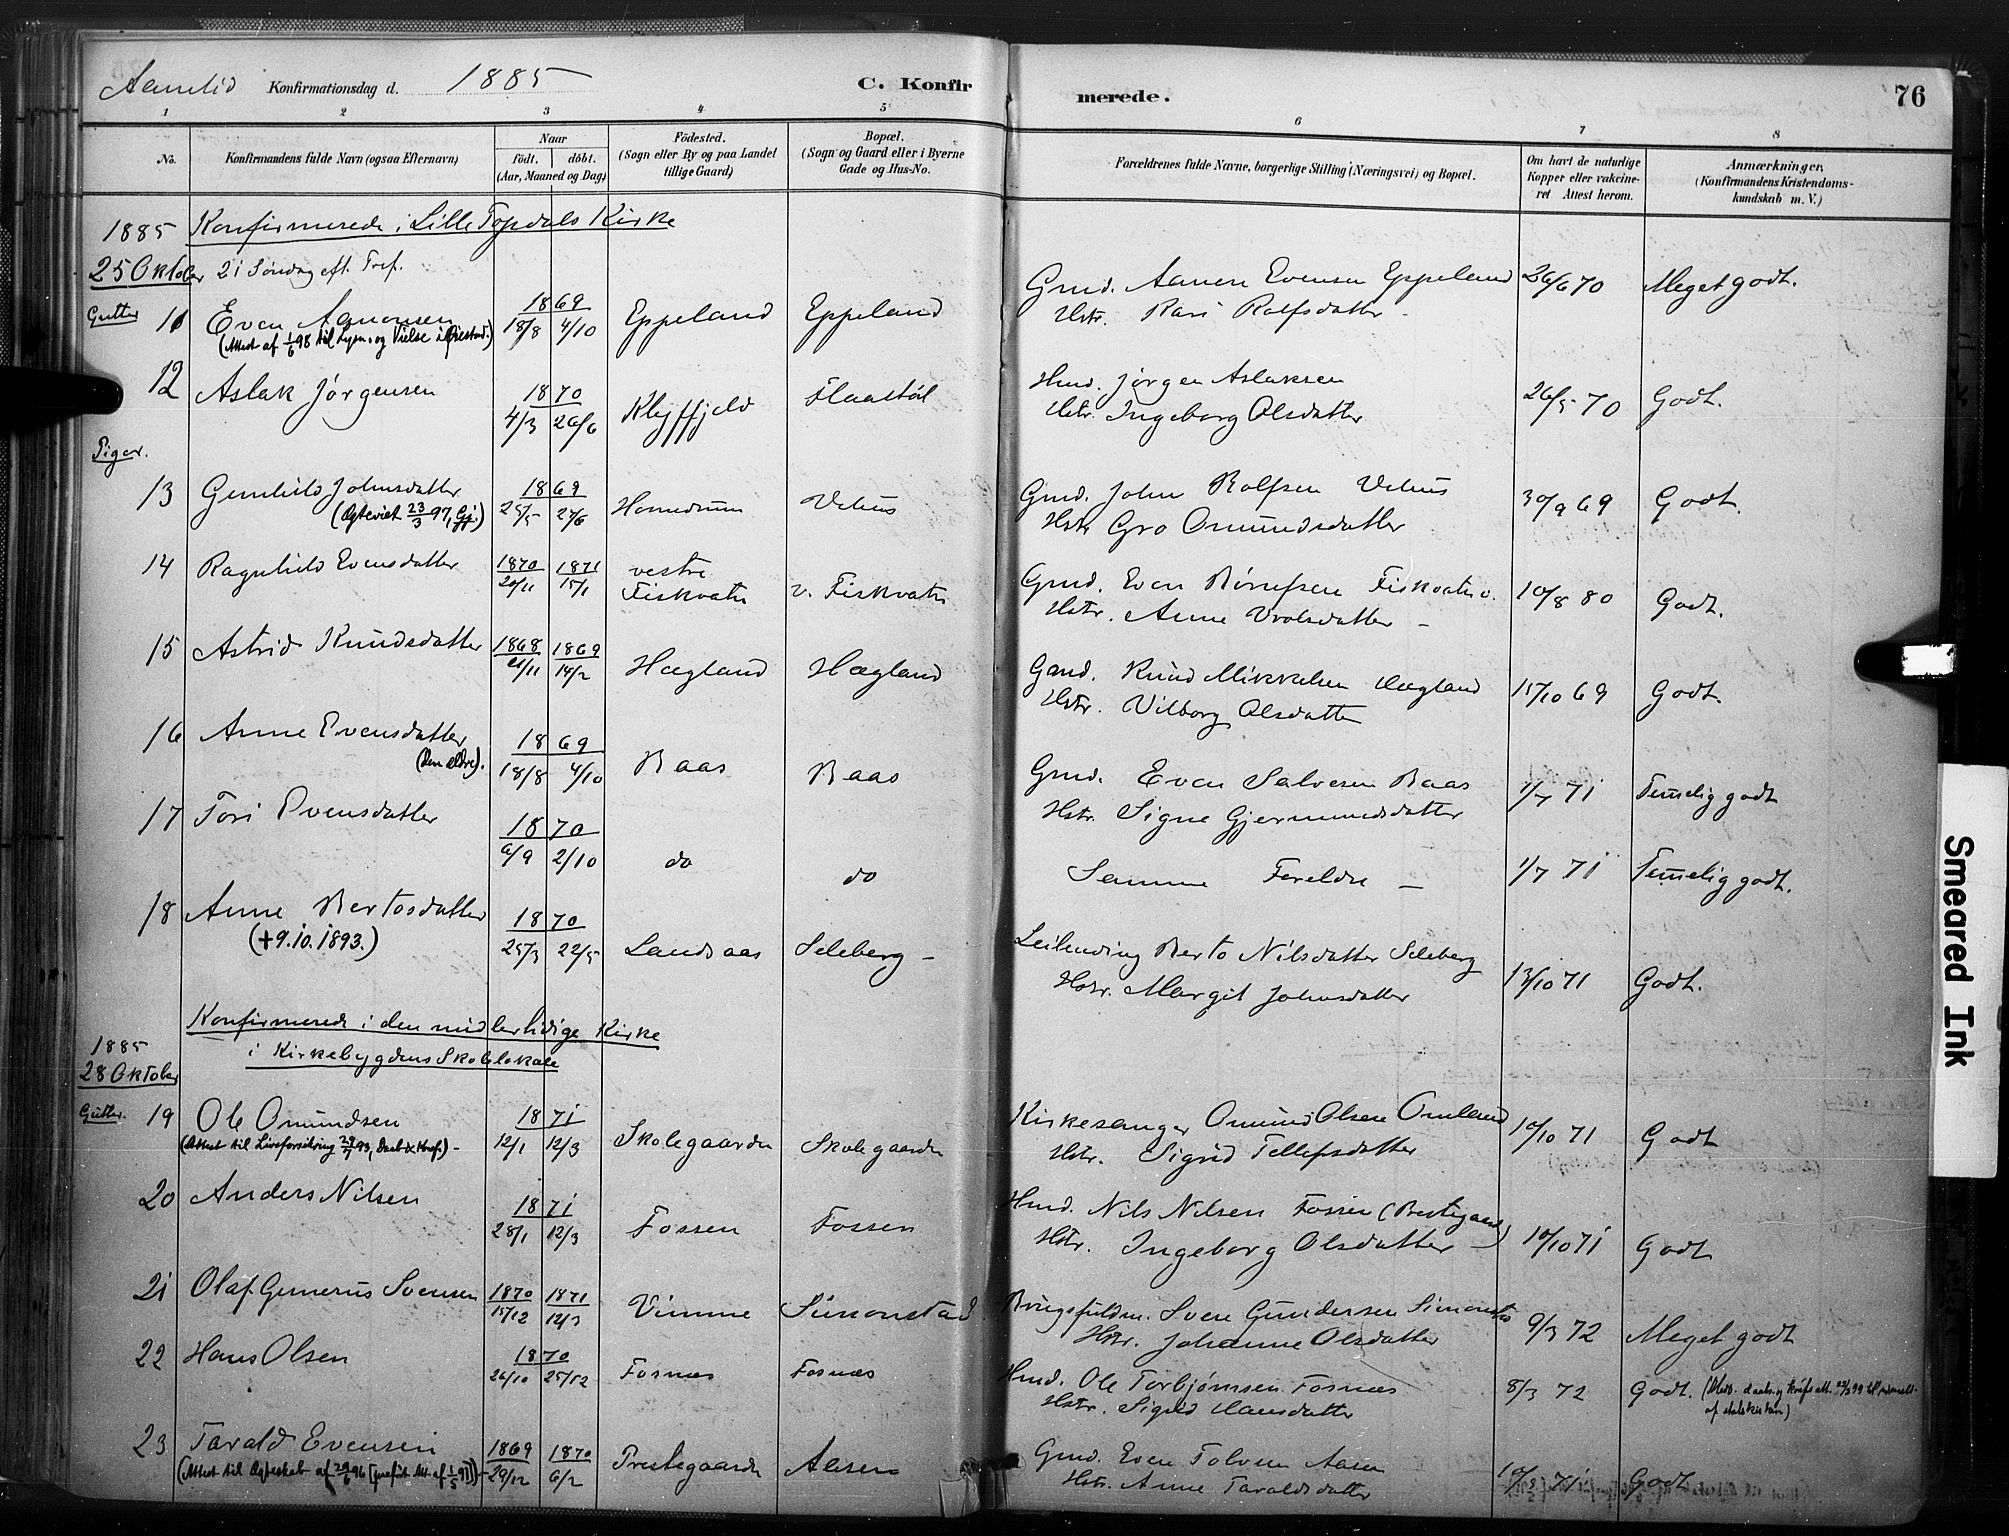 Aamlid Konfirmationsdag d. 1885 C. Konfirmerede. 76
1 2 3 4 5 6 7 8
No. Konfirmandens fulde Navn (ogsaa Efternavn) Naar födt. döbt. (Aar, Maaned og Dag)
Födested. (Sogn eller By og paa Landet tillige Gaard)
Bopæl. (Sogn og Gaard eller i Byerne Gade og Hus-No.
Forældrenes fulde Navne, borgerlige Stilling (Næringsvei) og Bopæl.
Om havt de naturlige Kopper eller vakcineret Attest herom.
Anmærkninger. (Konfirmandens Kristendomskundskab m. V.)
1885 Konfirmerede i Lille Topdals Kirke
25 Oktober 21 Søndag eft. Tref.
Gutter 11 Even Aanensen 1869 18/8 4/10 Eppeland Eppeland Gmd. Aanen Evensen Eppeland 26/6 70 Meget godt.
(Attest af 1/6 98 til Lysn. og Vielse i Øiestad.) Hstr. Kari Rolfsdatter -
12 Aslak Jørgensen 1870 4/3 26/6 Kleyffjeld Flaastøl Hmd. Jørgen Aslaksen 26/5 70 Godt.
Hstr. Ingeborg Olsdatter
Piger.
13 Gunhild Johnsdatter 1869 25/5 27/6 Homdrum Vehus Gmd. John Rolfsen Vehus 30/9 69 Godt.
(Ægteviet 23/3 97, Gj.) Hstr Gro Omundsdatter
14 Ragnhild Evensdatter 1870 20/11 1871 15/1 vestre Fiskvatn v. Fiskvatn Gmd. Even Fiskvatn v. 10/8 80 Godt.
Hstr. Anne Vrolsdatter -
15 Astrid Knudsdatter 1868 21/11 1869 14/2 Hægland Hægland Gmd. Knud Mikkelsen Hægland 15/10 69 Godt.
Hstr. Vilborg Olsdatter
16 Anne Evensdatter 1869 18/8 4/10 Baas Baas Gmd. Even Salvesen Baas 1/7 71 Temelig godt
(Den ældre). Hstr. Signe Gjermundsdatter
17 Tori Evensdatter 1870 6/9 2/10 do do Samme Foreldre - 1/7 71 Temelig godt.
18 Anne Bertosdatter 1870 25/3 22/5 Landsaas Seleberg - Leilending Berto Nilsdatter Seleberg 13/10 71 Godt.
(+9.10.1893.) Hstr. Margit Johnsdatter
Konfirmerede i den midlertidige Kirke
1885 i Kirkebygdens Skolelokale
28 Oktober
Gutter. 19 Ole Omundsen 1871 12/1 12/3 Skolegaarden Skolegaarden Kirkesanger Omund Olsen Omland 10/10 71 Godt
(Attest til Livsforsikring 93, Daab & Konf.) - Hstr. Sigrid Tellefsdatter
20 Anders Nilsen 1871 28/1 12/3 Fossen Fossen Hmd. Nils Nilsen Fossen (Prestegaard) 10/10 71 Godt
Hstr. Ingeborg Olsdatter -
21 Olaf Gunerius Svensen 1870 15/12 1871 12/3 Vimme Simonstad Brugsfuldm. Sven Gundersen Simonsta 9/3 72 Meget godt
Hstr. Johanne Olsdatter
22 Hans Olsen 1870 26/10 25/12 Fosnæs Fosnæs Hmd. Ole Torbjørnsen Fosnæs 8/3 72 Godt.
Hstr. Sigrid Hansdatter af statskirken)
23 Tarald Evensen 1869 29/12 1870 6/2 Prestegaarden Aasen Gmd. Even Tolvsen Aasen 71 Godt
(Attest til Ægteskab af 96 Hstr. Anne Taraldsdatter
Smeared Ink